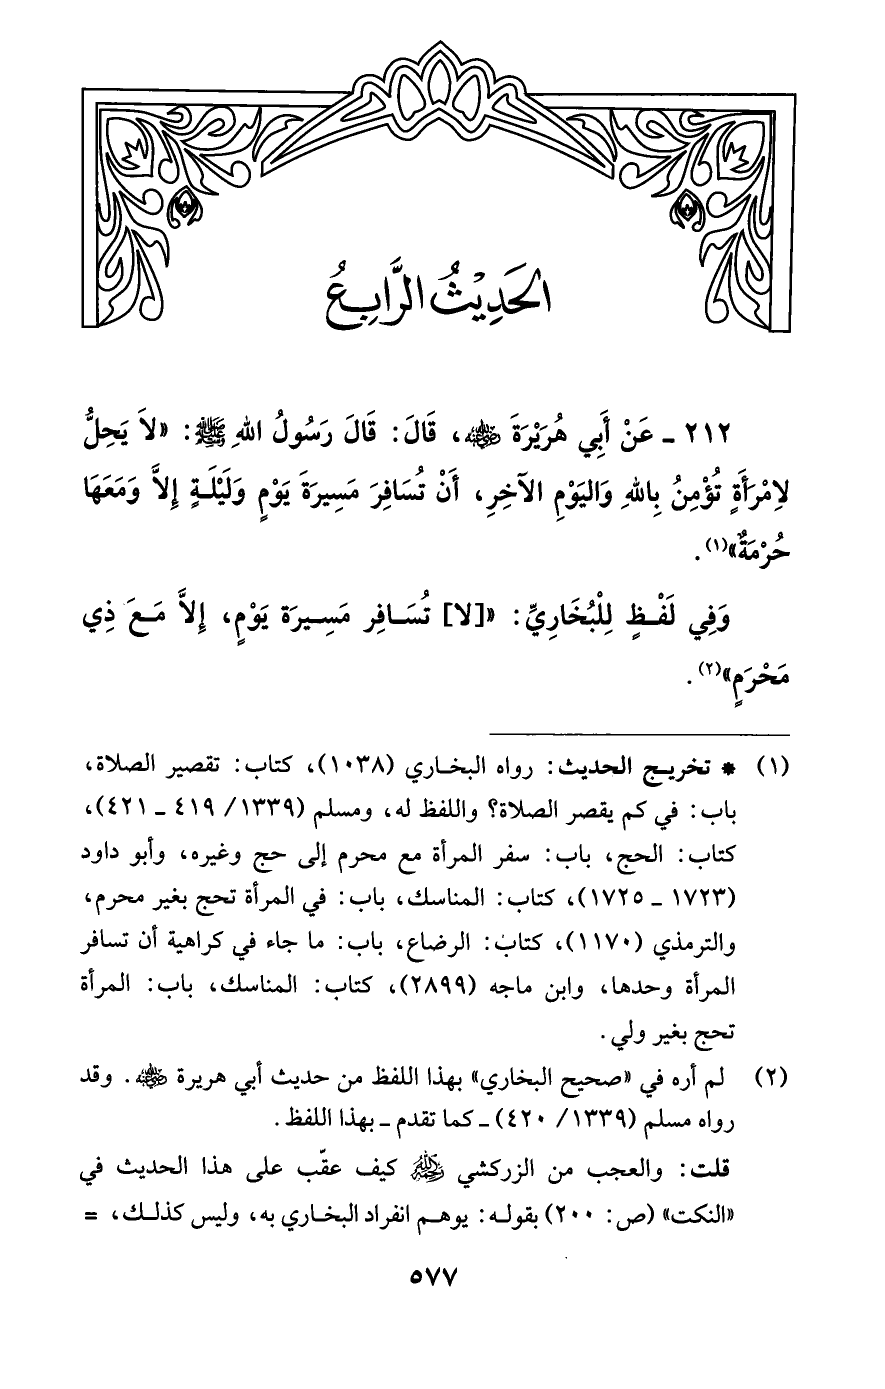 الحَدِيْثُ الرَّابِعُ
٢١٢ ـ عَنْ أَبِي هُرَيْرَةَ ﵁، قَالَ: قَالَ رَسُولُ اللهِ ﷺ: «لاَ يَحِلُّ
لاِمْرَأَةٍ تُؤْمِنُ بِاللهِ وَاليَوْمِ الآخِرِ، أَنْ تُسَافِرَ مَسِيرَةَ يَوْمٍ وَلَيْلَةٍ إِلاَّ وَمَعَهَا
حُرْمَةٌ»(١).
وَفِي لَفْظٍ لِلْبُخَارِيِّ: «[لا] تُسَافِر مَسِيرَة يَوْمٍ، إِلاَّ مَعَ ذِي
مَحْرَمٍ»(٢).
(١) * تخريج الحديث: رواه البخاري (١٠٣٨)، كتاب: تقصير الصلاة،
باب: في كم يقصر الصلاة؟ واللفظ له، ومسلم (١٣٣٩/ ٤١٩ ـ ٤٢١)،
كتاب: الحج، باب: سفر المرأة مع محرم إلى حج وغيره، وأبو داود
(١٧٢٣ ـ ١٧٢٥)، كتاب: المناسك، باب: في المرأة تحج بغير محرم،
والترمذي (١١٧٠)، كتاب: الرضاع، باب: ما جاء في كراهية أن تسافر
المرأة وحدها، وابن ماجه (٢٨٩٩)، كتاب: المناسك، باب: المرأة
تحج بغير ولي.
(٢) لم أره في «صحيح البخاري» بهذا اللفظ من حديث أبي هريرة ﵁. وقد
رواه مسلم (١٣٣٩/ ٤٢٠) ـ كما تقدم ـ بهذا اللفظ.
قلت: والعجب من الزركشي ﵀ كيف عقّب على هذا الحديث في
«النكت» (ص: ٢٠٠) بقوله: يوهم انفراد البخاري به، وليس كذلك، =
٥٧٧